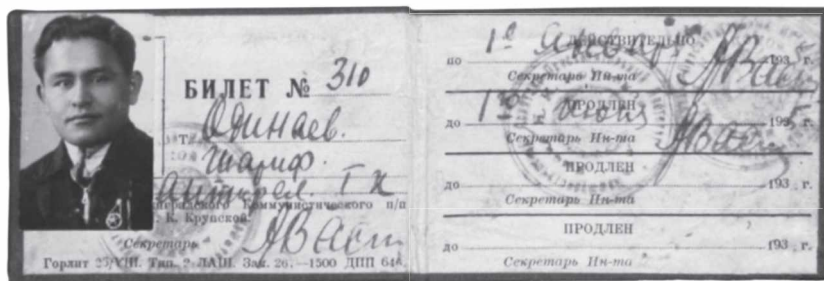 БИЛЕТ № 310
Одинаев
Шариф
Антирел. I к
Коммунистического п/и
К. Крупской
Секретарь
Горлит Тип. 2 ЛАШ. Зак. 26.—1500 ДПП
ДЕЙСТВИТЕЛЬНО
по 1е января 193 г.
Секретарь Ин-та
ПРОДЛЕН
до 1е июля 1935 г.
Секретарь Ин-та
ПРОДЛЕН
до 193 г.
Секретарь Ин-та
ПРОДЛЕН
до 193 г.
Секретарь Ин-та